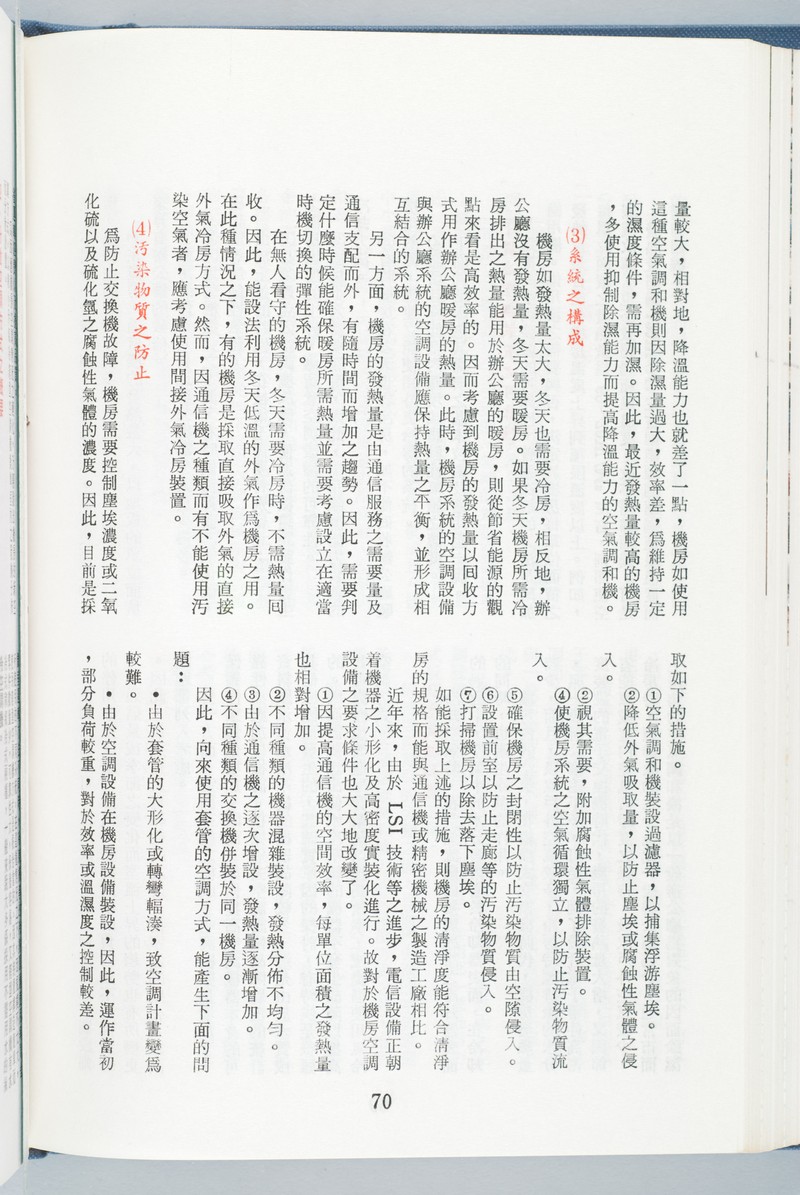 量較大，相對地，降溫能力也就差了一點，機房如使用
這種空氣調和機則因除濕量過大，效率差，爲維持一定
的濕度條件，需再加濕。因此，最近發熱量較高的機房
，多使用抑制除濕能力而提高降溫能力的空氣調和機。
(3)系統之構成
機房如發熱量太大，冬天也需要冷房，相反地，辦
公廳沒有發熱量，冬天需要暖房。如果冬天機房所需冷
房排出之熱量能用於辦公廳的暖房，則從節省能源的觀
點來看是高效率的。因而考慮到機房的發熱量以回收方
式用作辦公廳暖房的熱量。此時，機房系統的空調設備
與辦公廳系統的空調設備應保持熱量之平衡，並形成相
互結合的系統。
另一方面，機房的發熱量是由通信服務之需要量及
通信支配而外，有隨時間而增加之趨勢。因此，需要判
定什麼時候能確保暖房所需熱量並需要考慮設立在適當
時機切換的彈性系統。
在無人看守的機房，冬天需要冷房時，不需熱量回
收。因此，能設法利用冬天低溫的外氣作爲機房之用。
在此種情況之下，有的機房是採取直接吸取外氣的直接
外氣冷房方式。然而，因通信機之種類而有不能使用汚
染空氣者，應考慮使用間接外氣冷房裝置。
(4)汚染物質之防止
爲防止交換機故障，機房需要控制塵埃濃度或二氧
化硫以及硫化氫之腐蝕性氣體的濃度。因此，目前是採
取如下的措施。
①空氣調和機裝設過濾器，以捕集浮游塵埃。
②降低外氣吸取量，以防止塵埃或腐蝕性氣體之侵
入。
②視其需要，附加腐蝕性氣體排除裝置。
④使機房系統之空氣循環獨立，以防止汚染物質流
入。
⑤確保機房之封閉性以防止汚染物質由空隙侵入。
⑥設置前室以防止走廊等的汚染物質侵入。
⑦打掃機房以除去落下塵埃。
如能採取上述的措施，則機房的清淨度能符合清淨
房的規格而能與通信機或精密機械之製造工廠相比。
近年來，由於 LSI 技術等之進步，電信設備正朝
着機器之小形化及高密度實裝化進行。故對於機房空調
設備之要求條件也大大地改變了。
①因提高通信機的空間效率，每單位面積之發熱量
也相對增加。
②不同種類的機器混雜裝設，發熱分佈不均勻。
③由於通信機之逐次增設，發熱量逐漸增加。
④不同種類的交換機併裝於同一機房。
因此，向來使用套管的空調方式，能產生下面的問
題：
•由於套管的大形化或轉彎輻湊，致空調計畫變爲
較難。
•由於空調設備在機房設備裝設，因此，運作當初
，部分負荷較重，對於效率或溫濕度之控制較差。
70